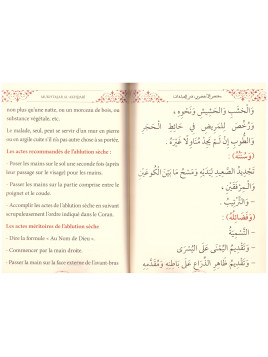 MOUKHTASAR AL AKHDARI
non plus qu'une natte, ou un morceau de bois, ou
substance végétale, etc.
Le malade, seul, peut se servir d'un mur en pierre
ou en argile cuite s'il n'a pas autre chose à sa portée.
Les actes recommandés de l'ablution sèche :
- Poser les mains sur le sol une seconde fois (après
leur passage sur le visage) pour les mains.
- Passer les mains sur la partie comprise entre le
poignet et le coude.
- Accomplir les actes de l'ablution sèche en suivant
scrupuleusement l'ordre indiqué dans le Coran.
Les actes méritoires de l'ablution sèche
- Dire la formule « Au Nom de Dieu ».
- Commencer par la main droite.
- Passer la main sur la face externe de l'avant-bras
مختصر الأخضري في العبادات
وَالْخَشَبِ وَالْحَشِيشِ وَنَحْوِهِ،
وَرُخِّصَ لِلْمَرِيضِ فِي حَائِطِ الْحَجَرِ
وَالطُّوبِ إِنْ لَمْ يَجِدْ مُنَاوِلًا غَيْرَهُ.
(وَسُنَنُهُ):
تَجْدِيدُ الصَّعِيدِ لِيَدَيْهِ وَمَسْحُ مَا بَيْنَ الْكُوعَيْنِ
وَالْمِرْفَقَيْنِ،
- وَالتَّرْتِيبُ.
(وَفَضَائِلُهُ):
- التَّسْمِيَةُ
- وَتَقْدِيمُ الْيُمْنَى عَلَى الْيُسْرَى
- وَتَقْدِيمُ ظَاهِرِ الذِّرَاعِ عَلَى بَاطِنِهِ وَمُقَدَّمِهِ